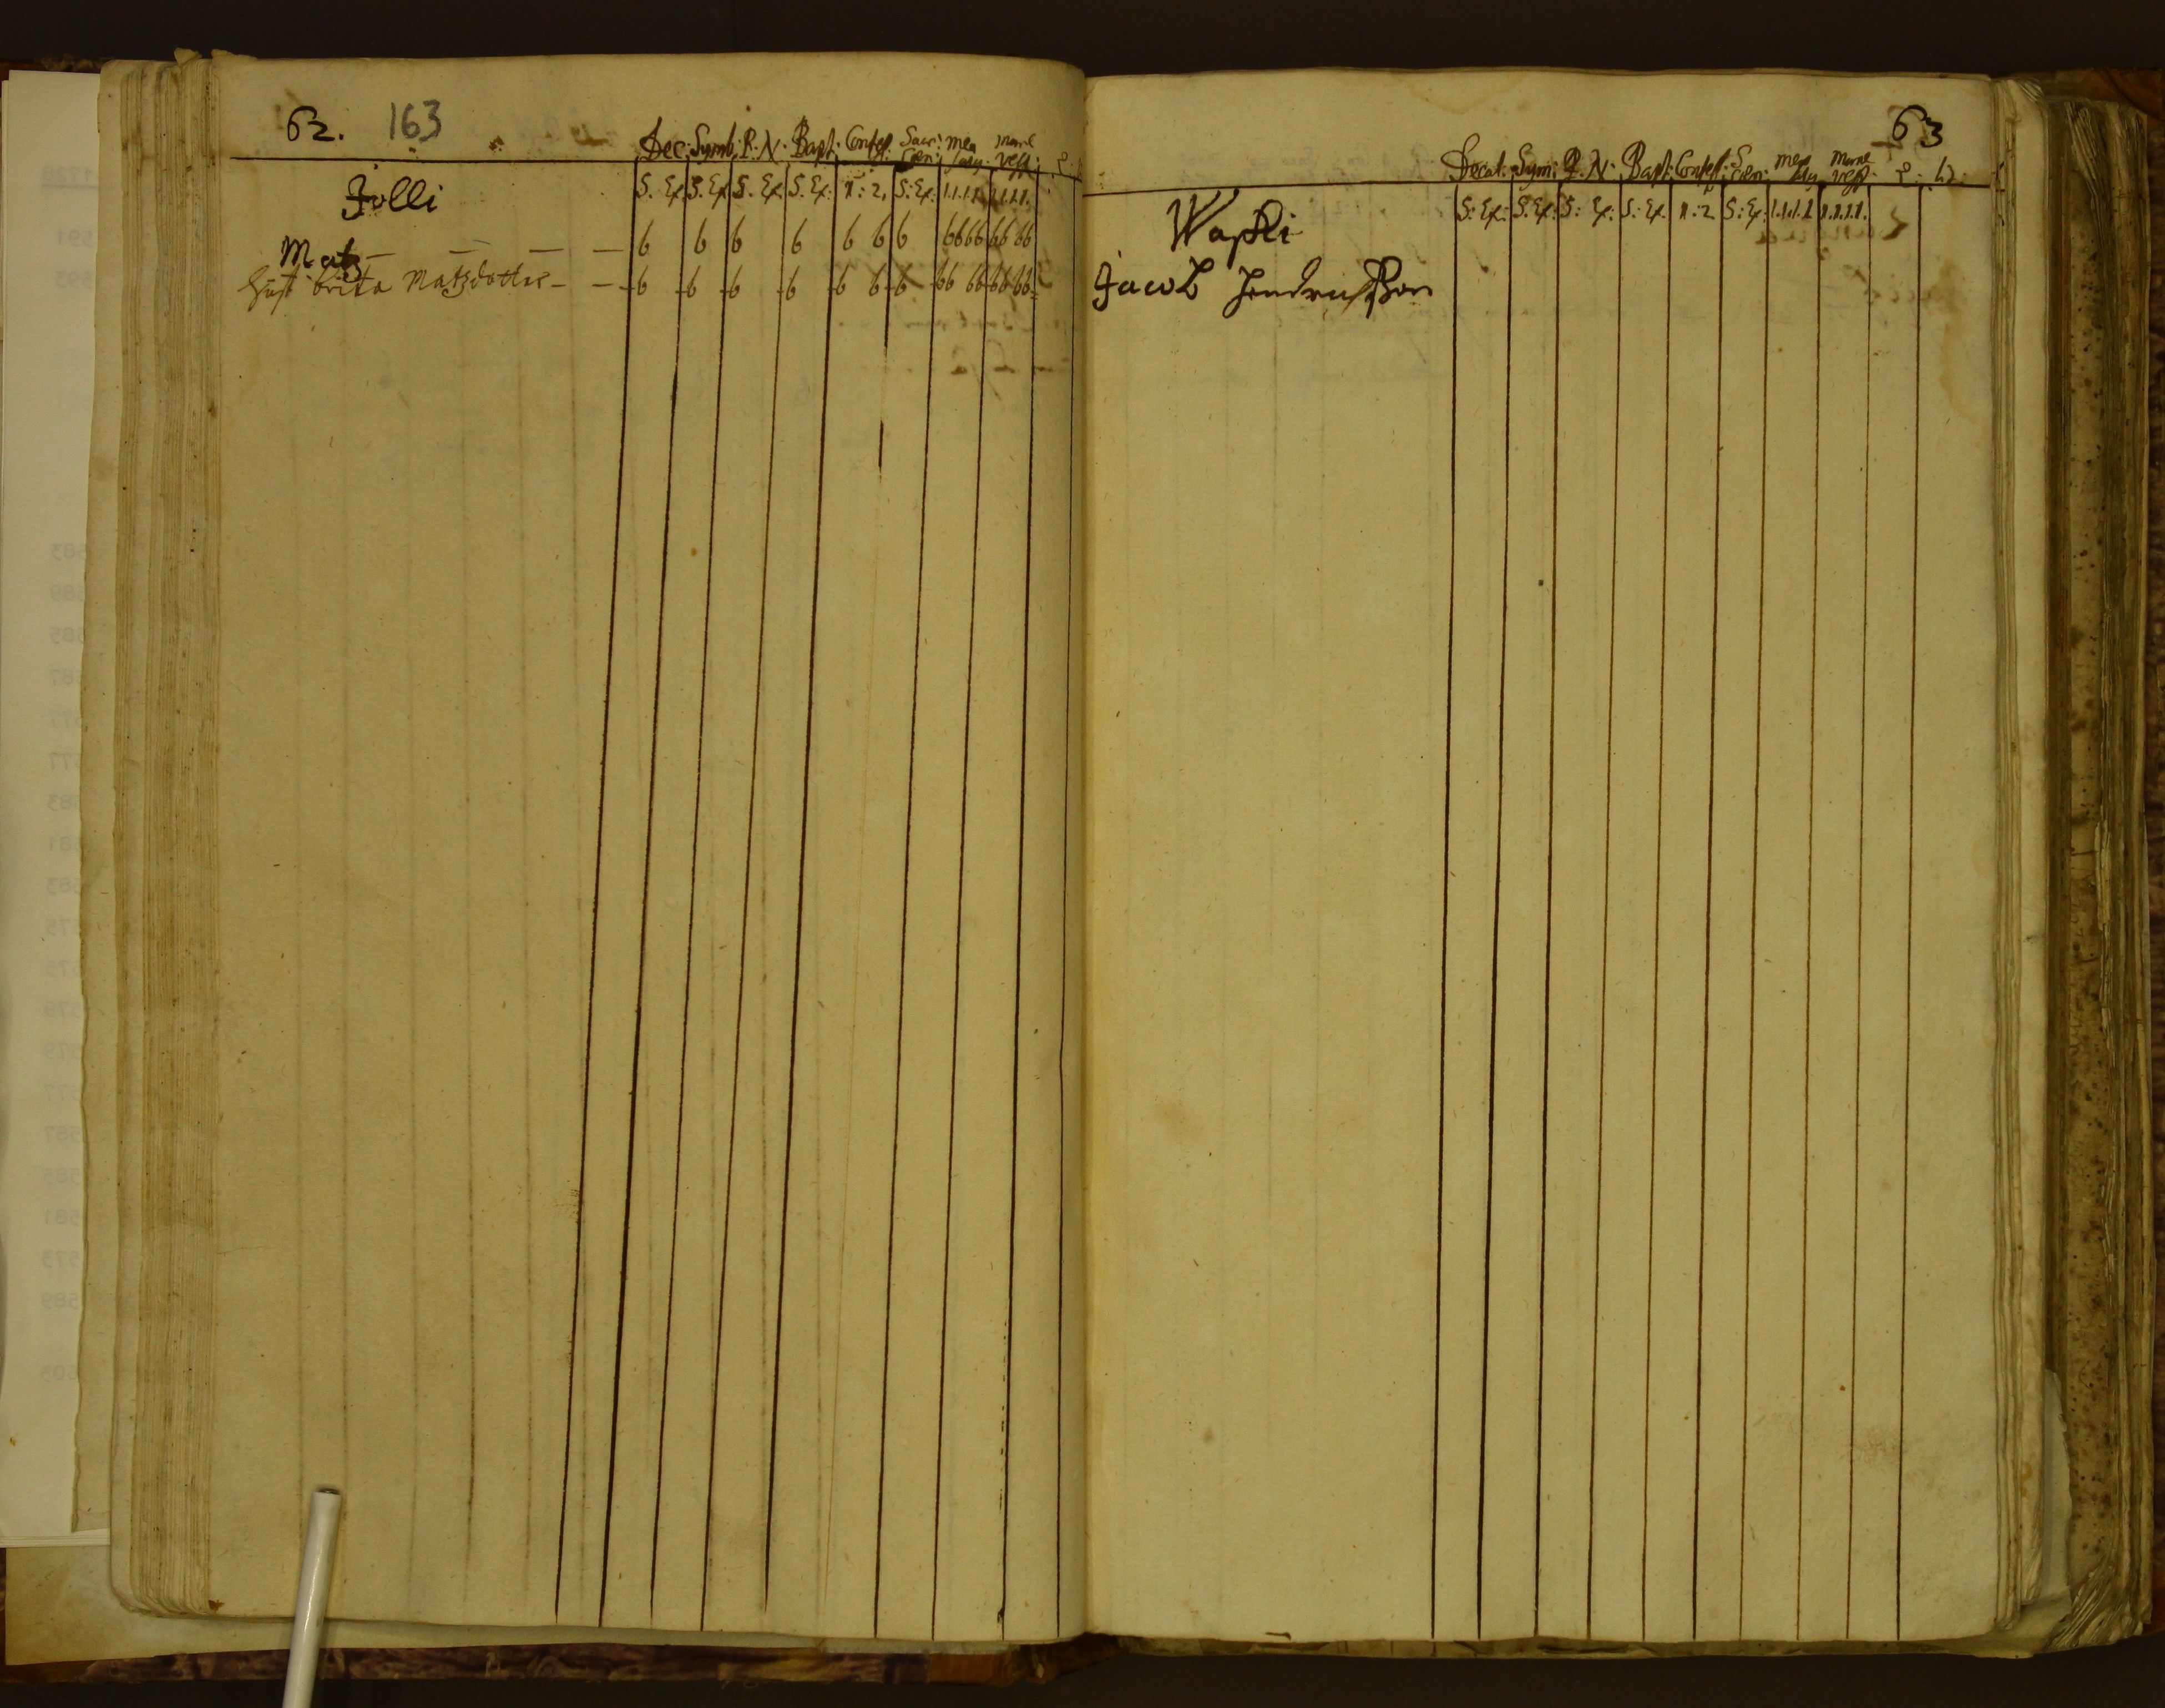 62. 163
Dec: Symb: P: N: Bapt: Confess: Sacr: Cœn: mea mane vesp:
Jolli S. Ex. S. Ex S. Ex. S. Ex: 1: 2, S: Ex: 1.1.1.1. 1.1.1.1.
Matz — — — — 6 6 6 6 6 6 6 6666 66 66
Hust brita Matzdotter - - - 6 6 6 6 6 6 6 66 66 66 66
63
Decal: Sym: P. N: Bapt: Confess: S Cœn: mea mane vesp:
S: Ex: S. Ex: S: Ex: S: Ex. 1: 2 S: Ex: 1.1.1.1 1.1.1.1.
Waski
Jacob Hendrichsson